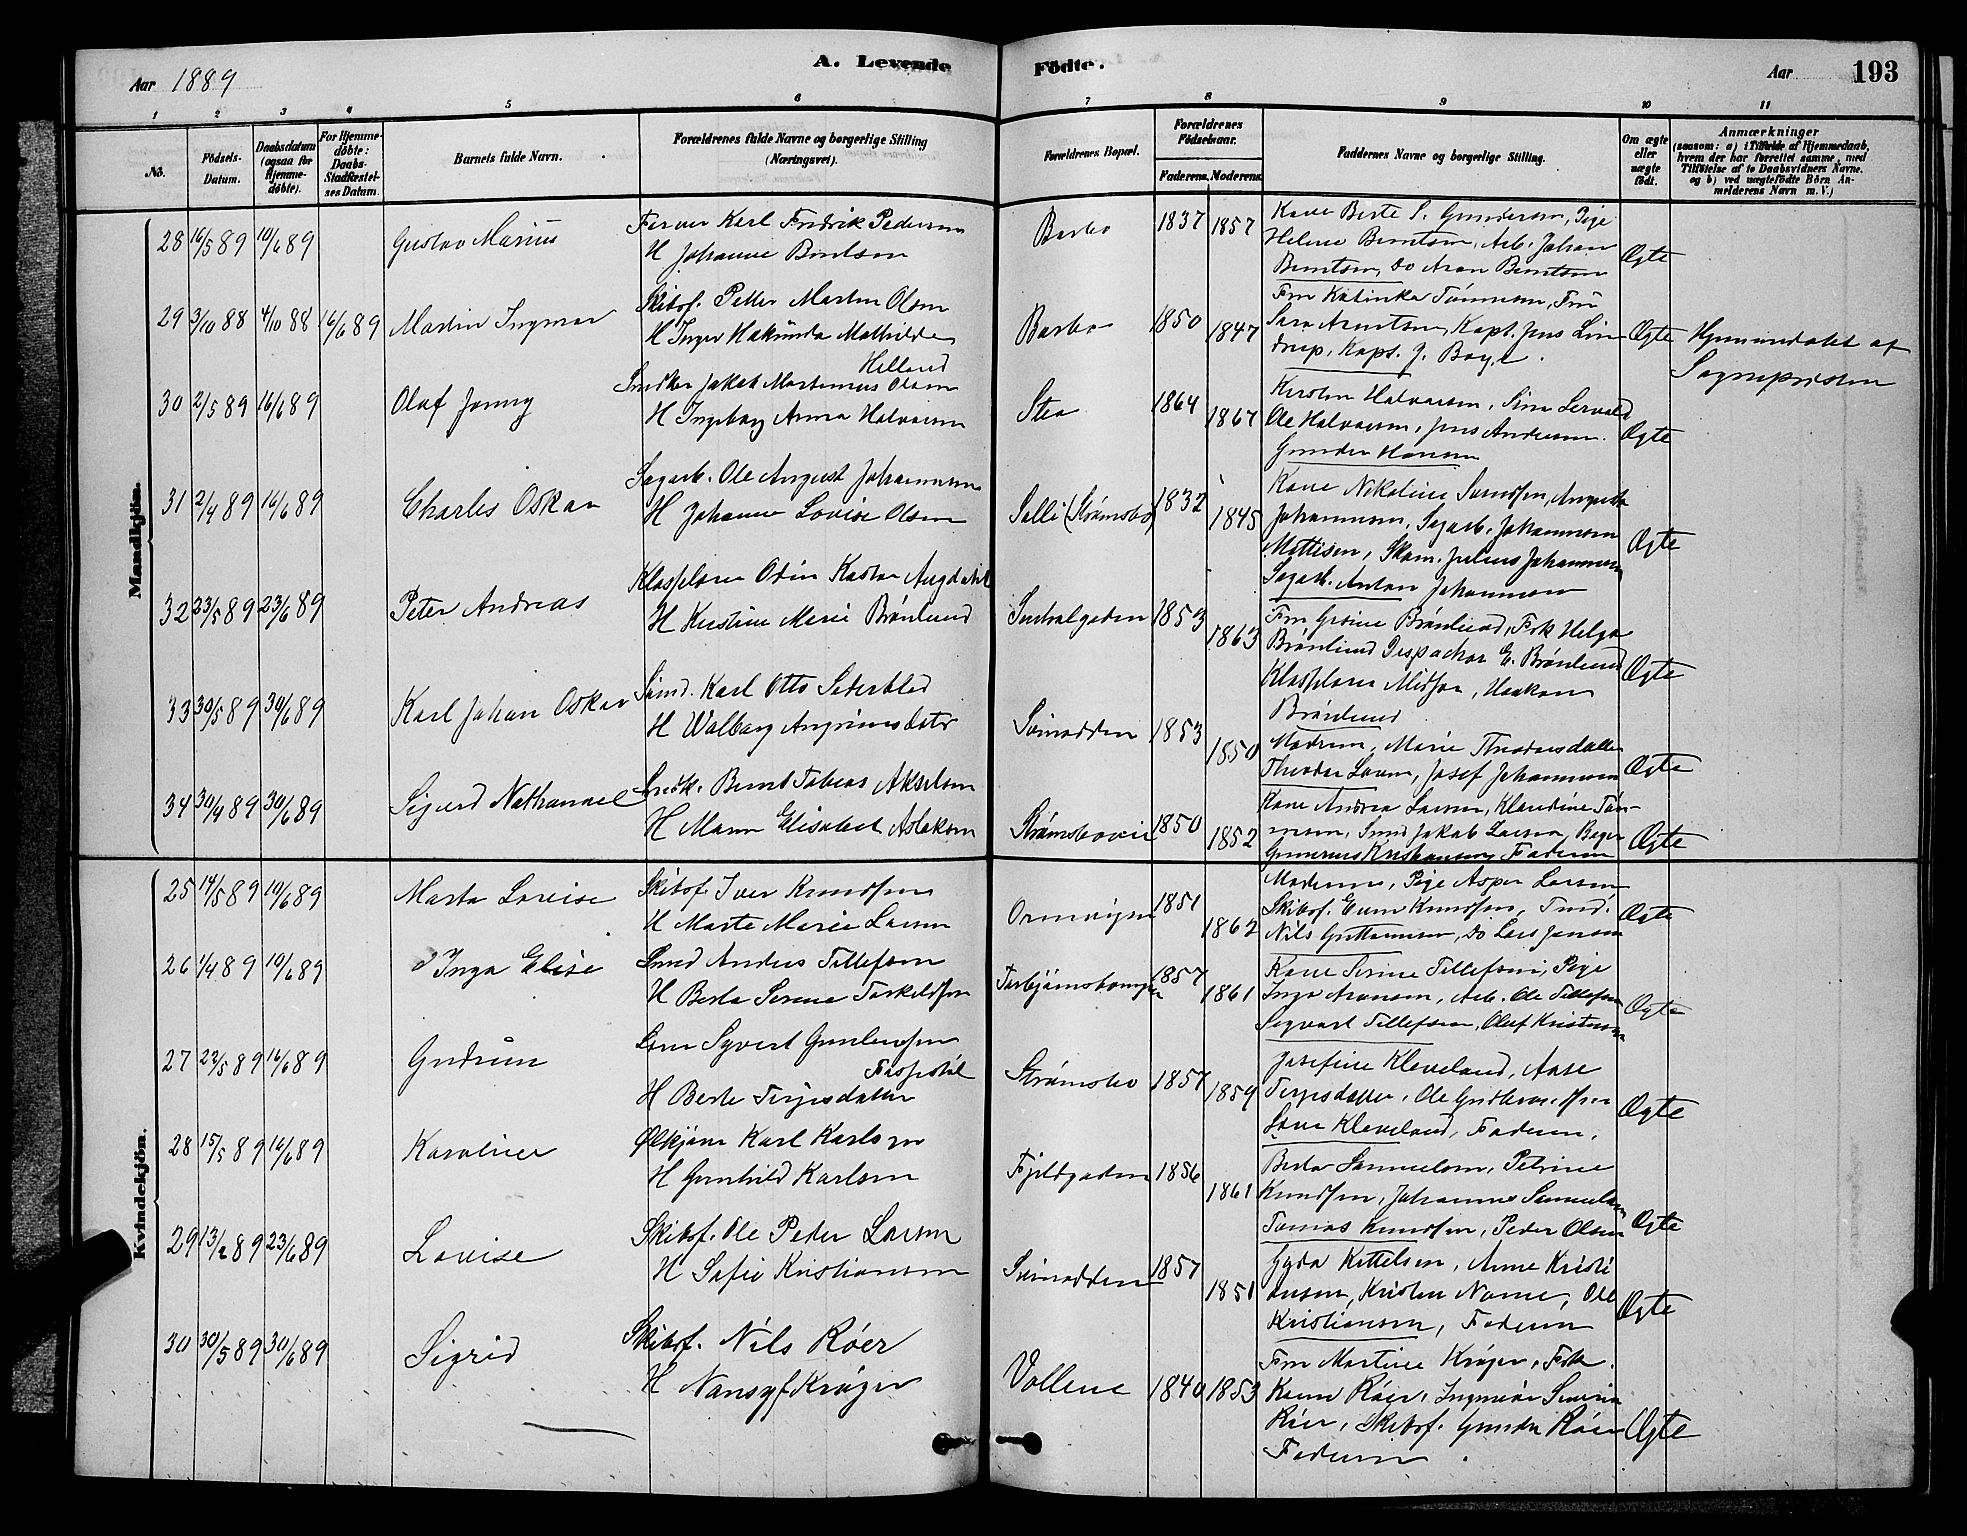 Aar 1889
A. Levende Födte.
Aar 193
1 2 3 4 5 6 7 8 9 10 11
No.
Födsels-Datum.
Daabsdatum (ogsaa for Hjemme-döbte).
For Hjemme-döbte: Daabs-Stadfæstel-ses Datum.
Barnets fulde Navn.
Forældrenes fulde Navne og borgerlige Stilling
(Næringsvei).
Forældrenes Bopæl.
Forældrenes Födselsaar.
Faderens. Moderens.
Faddernes Navne og borgerlige Stilling.
Om ægte eller uægte födt.
Anmærkninger
(saasom: a) i Tilfælde af Hjemmedaab,
hvem der har forrettet samme, med
Tilföielse af to Daabsvidners Navne.
og b) ved uægtefödte Börn An-
melderens Navn m. V.)
Mandkjön.
28 16/5 89 10/6 89 Gustav Marius
Farver Karl Fredrik Pedersen
H Johanne Berntsen
Barbo 1837 1857
Kone Berte S. Gundersen, Pige
Helene Berntsen, Arb. Johan
Berntsen, Do Aron Berntsen
Ægte
29 3/10 88 4/10 88 16/6 89 Martin Ingmar
Skibsf. Petter Martin Olsen
H Inger Hakunda Mathilde
Helland
Barbo 1850 1847
Fru Katinka Tönnesen, Fru
Sara Arntsen, Kapt. Jens Lin
drup, Kapt. J. Boye.
Ægte
Hjemmedøbt af
Sognepresten
30 2/5 89 16/6 89 Olaf Jonny
Snedker Jakob Martinius Olsen
H Ingeborg Anna Halvorsen
Stea 1864 1867
Kirsten Halvorsen, Sina
Ole Halvorsen, Jens Andersen.
Gunder Hansen
Ægte
31 2/4 89 16/6 89 Charles Oskar
Sagarb. Ole August Johannesen
H Johanne Lovise Olsen
Solli (Strømsbo) 1832 1845
Kone Nikoline Svendsen, Augusta
Johannesen, Sagarb. Johannesen
Mattisen, Skom. Julius Johannesen
Sagarb. Anton Johannesen
Ægte
32 23/5 89 23/6 89 Peter Andreas
Odin Kastor Augdahl
H Kirstine Marie Brönlund
1853 1863
Fru Grosine Brönlund, Frk Helga
Brönlund Dispachør E. Brönlund
Haakon
Brönlund
Ægte
33 30/5 89 30/6 89 Karl Johan Oskar
Sømd. Karl Otto
H Walborg
Svinodden 1853 1850
Moderen, Marie
Theodor Larsen, Josef Johannesen
Ægte
34 30/4 89 30/6 89 Sigurd Nathanael
Snedk. Bernt Tobias Akselsen
H Maren Elisabet Aslaksen
Strømsboveien 1850 1852
Kone Andrea Larsen, Klaudine Tön-
nesen, Smed Jakob Larsen, Bager
Gunerius Kristiansen, Faderen
Ægte
Kvindekjön.
25 14/5 89 10/6 89 Marta Lovise
Skibsf. Iver Knudsen
H Marte Marie Larsen
1851 1862
Moderen, Pige Larsen
Skibsf. Even Knudsen,
Nils Guttormsen, Do Lars Jensen
Ægte
26 1/4 89 10/6 89 Inga Elise
Smed Anders Tellefsen
H Berta Serine Torkildsen
1857 1861
Kone Serine Tellefsen, Pige
Inga Aronsen, Arb. Ole Tellefsen
Sigvart Tellefsen, Oluf Kristensen
Ægte
27 22/5 89 16/6 89 Gudrun
Syvert
H Berte Terjesdatter
Strømsbo 1857 1859
Josefine Kleveland, Aase
Terjesdatter, Ole
Kleveland, Faderen.
Ægte
28 15/5 89 16/6 89 Karoline
Ølkjører Karl Karlsen
H Gunhild Karlsen
Fjeldgaden 1856 1861
Berta Samuelsen, Petrine
Knudsen, Johannes Samuelsen
Tomas Knudsen, Peder Olsen
Ægte
29 13/2 89 23/6 89 Lovise
Skibsf. Ole Peder Larsen
H Sofie Kristiansen
Svinodden 1857 1851
Gyda Kittelsen, Anne Kristi
ansen, Kristen Ole
Kristiansen, Faderen
Ægte
30 30/5 89 30/6 89 Sigrid
Skibsf. Nils Röer
H Nansy f. Krøger
Vollene 1840 1853
Fru Martine Krøger, Frk
Röer, Ingeniør
Röer, Skibsf. Gunder Röer
Faderen.
Ægte